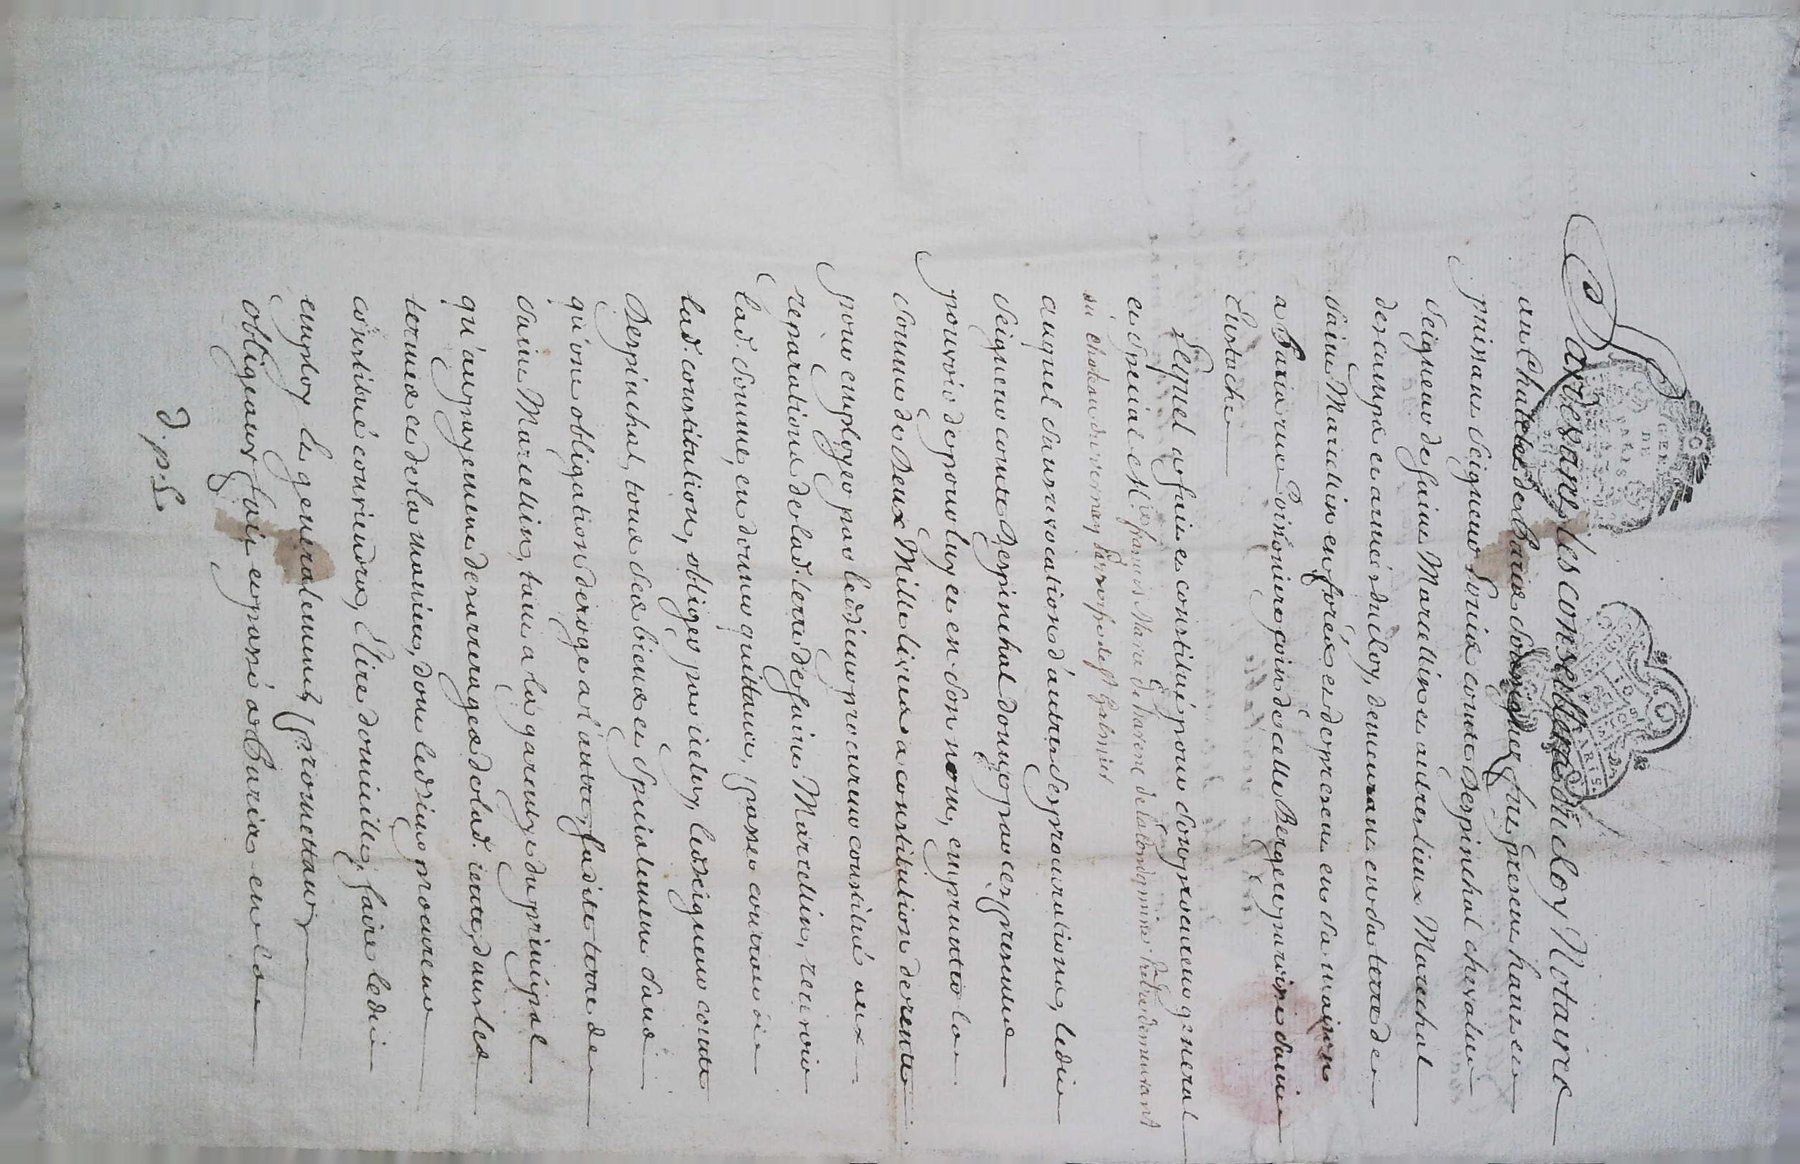 Pardevant les conseillers du Roy Notaires
au Chatelet de Paris soussignez fut present haut et
puissant Seigneur Louis comte Despinchal chevalier
Seigneur de Saint Marcellin et autres lieux Marechal
des camps et armées du Roy, demeurant en sa terre de
Saint Marcellin en forés et de present en sa maison
a Paris rue Poissoniere coin de celle Bergere paroisse Saint
Eustache
Lequel a fait et constitué pour son procureur general
et special M.re françois
du chateau du vernay Paroisse de St Galmier
auquel sans revocation d'autres procurations, ledit
Seigneur comte Despinchal donne par ces presentes
pouvoir de pour luy et en son nom, emprunter la
somme de Deux Mille livres a constitution de rente
pour employer par ledit procureur constitué aux
reparations de lad. terre de Saint Marcellin, recevoir
lad. somme, en donner quittance, passer contrat de
lad. constitution, obliger par iceluy ledit seigneur comte
Despinchal, tous ses biens et specialement sans
qu'une obligation deroge a l'autre, sadite terre de
Saint Marcellin, tant a la garentye du principal
qu'au payement des arrerages de lad. rente, dans les
termes et de la maniere dont ledit procureur
constitué conviendra, Elire domicille, faire ledit
employ & generalement & promettant
obligeant fait et passé a Paris en la